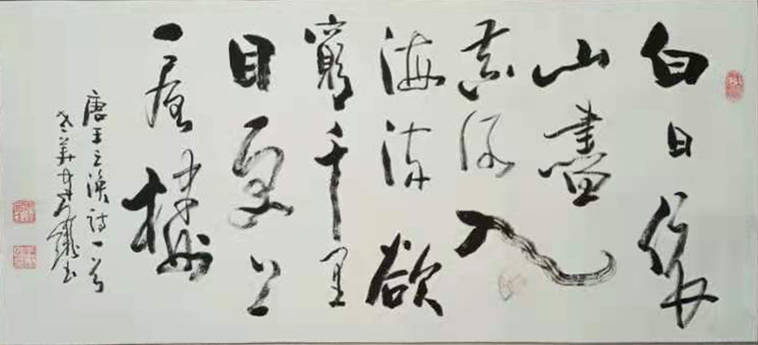 白日依
山盡
黃河入
海流欲
窮千里
目更上
一層樓
唐王之渙詩一首